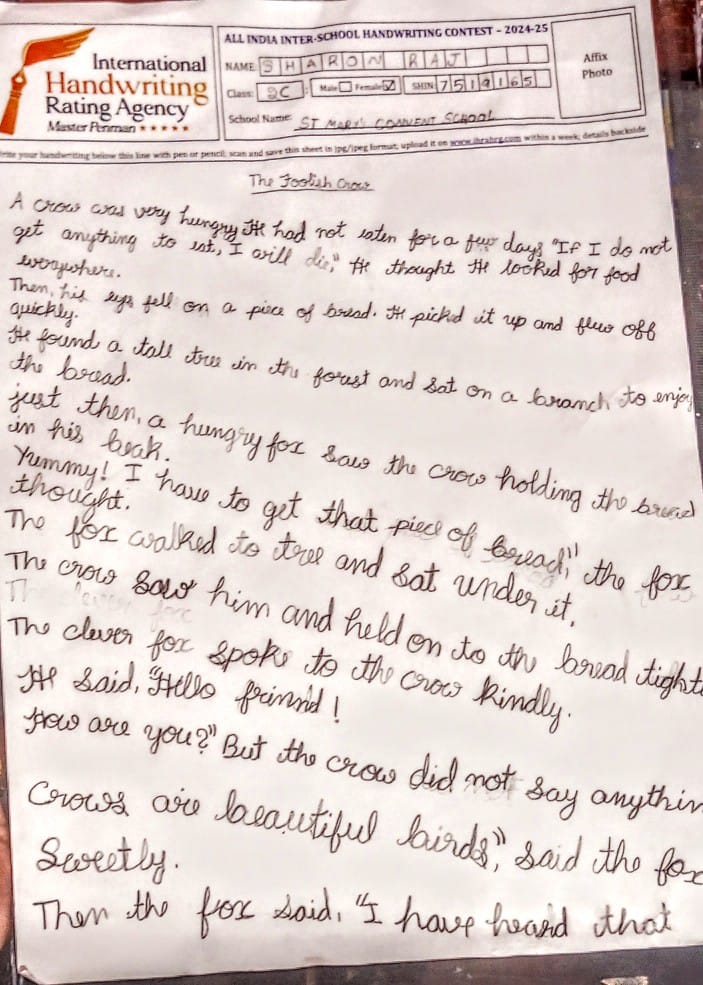 International
Handwriting
Rating Agency
Master Penman ★★★★★
ALL INDIA INTER-SCHOOL HANDWRITING CONTEST - 2024-25
NAME: SHARON RAJ
Class: 2C Male Female SHIN: 7519165
School Name: ST MARY'S CONVENT SCHOOL
Affix
Photo
write your handwriting below this line with pen or pencil; scan and save this sheet in jpg/jpeg format; upload it on www.ihrahrg.com within a week; details backside
The Foolish Crow
A crow was very hungry He had not eaten for a few days "If I do not
get anything to eat, I will die," He thought He looked for food
everywhere.
Then, his eye fell on a piece of bread. He picked it up and flew off
quickly.
He found a tall tree in the forest and sat on a branch to enjoy
the bread.
just then, a hungry fox saw the crow holding the bread
in his beak.
Yummy! I have to get that piece of bread," the fox
thought.
The fox walked to tree and sat under it.
The crow saw him and held on to the bread tight
The clever fox
The clever fox spoke to the crow kindly.
He said, "Hello frinnd!
How are you?" But the crow did not say anythin
Crows are beautiful birds," said the fox
Sweetly.
Then the fox said, "I have heard that